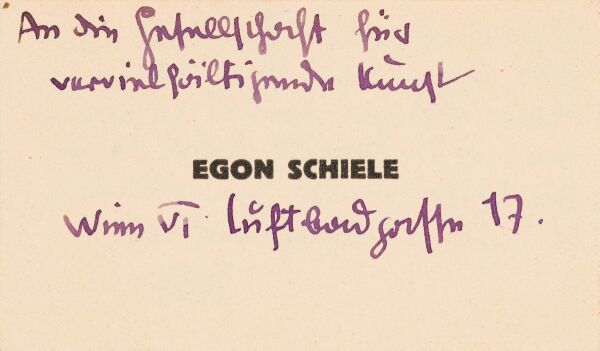 An die Gesellschaft für
vervielfältigende Kunst
EGON SCHIELE
Wien VI. Luftbadgasse 17.